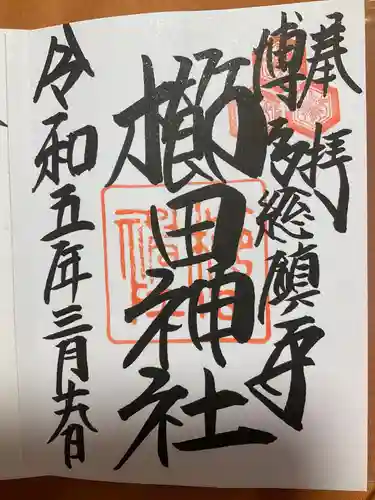 奉拝
博多総鎮守
櫛田神社
令和五年三月 日